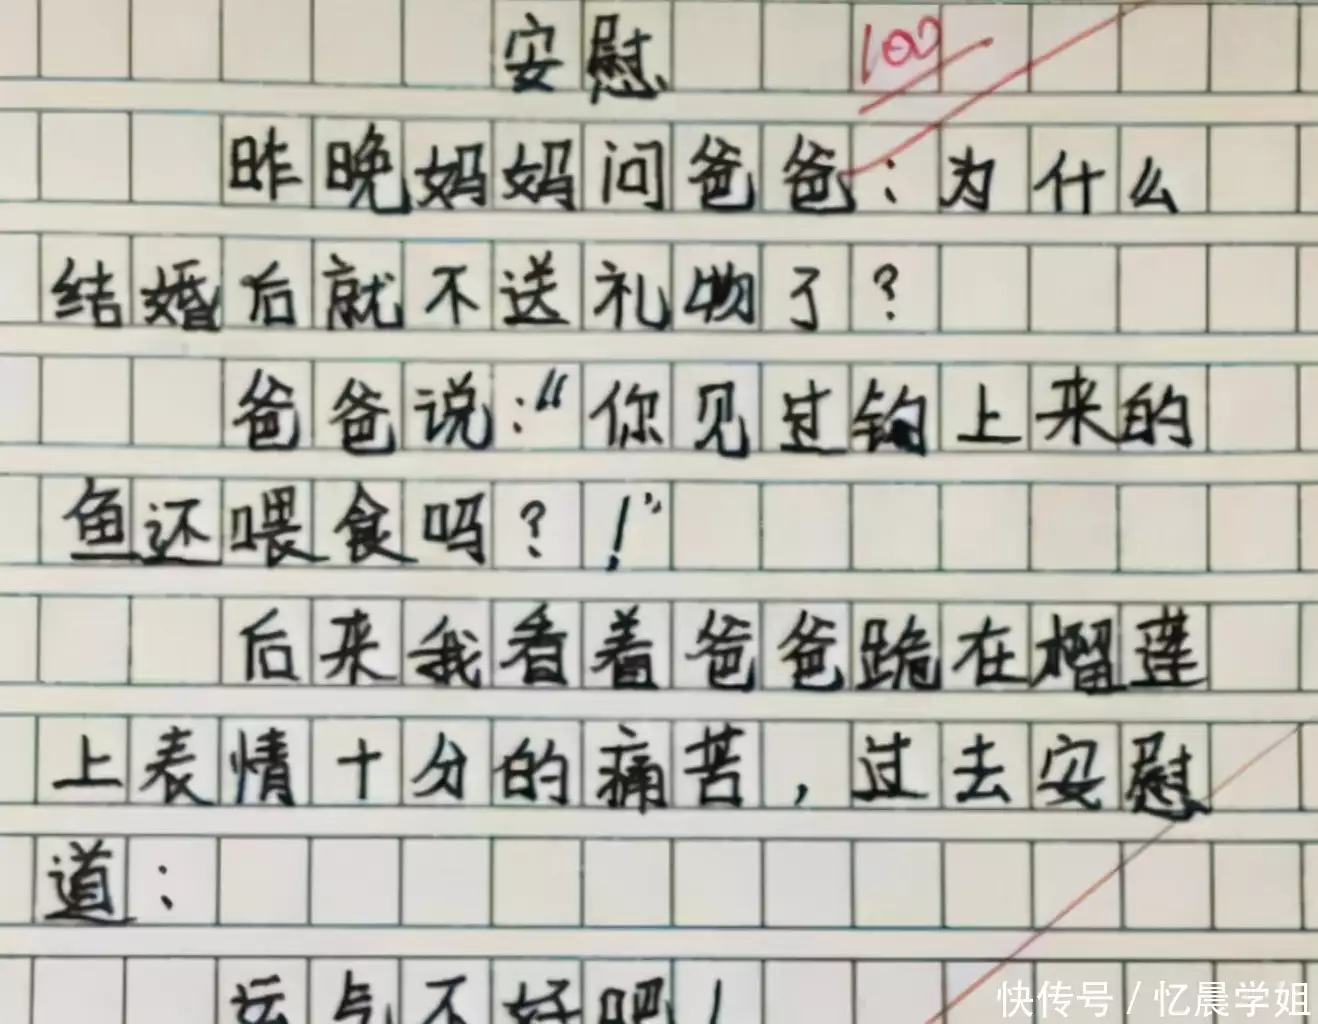 安慰
100
昨晚妈妈问爸爸：为什么
结婚后就不送礼物了？
爸爸说：“你见过钩上来的
鱼还喂食吗？！”
后来我看着爸爸跪在榴莲
上表情十分的痛苦，过去安慰
道：
运气不好吧！
快传号 / 忆晨学姐